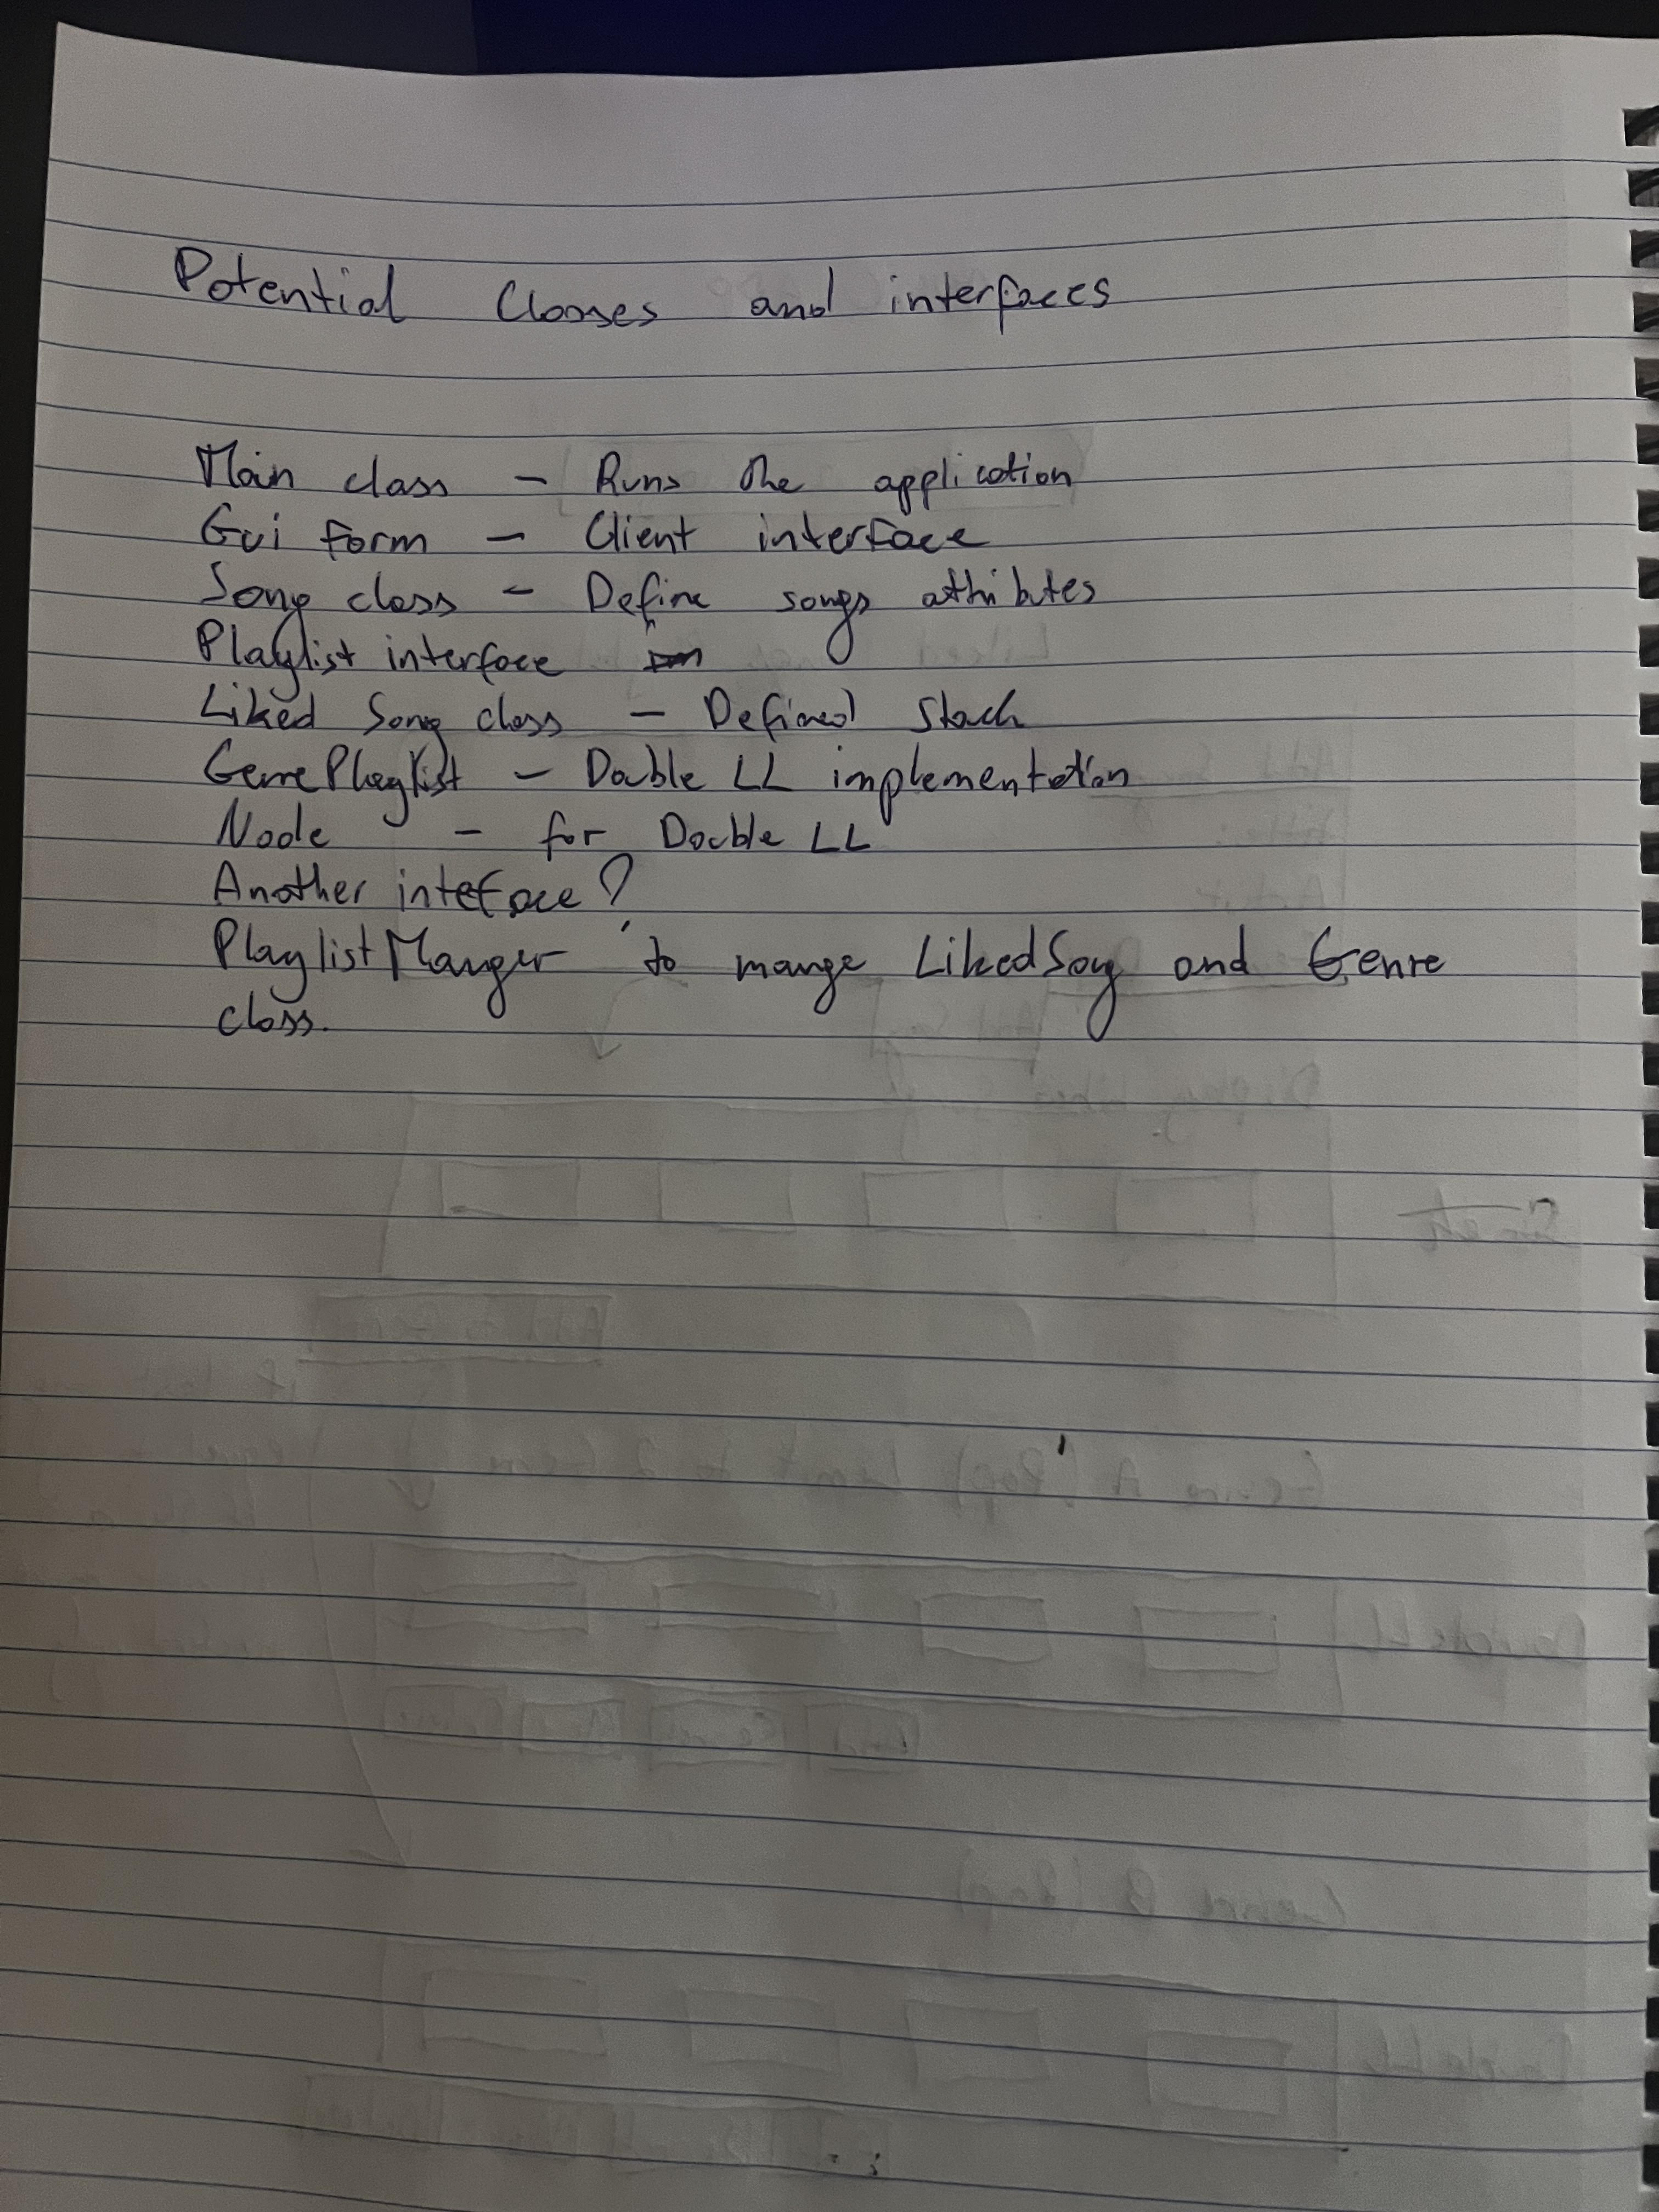 Potential Classes and interfaces
Main class - Runs the application
Gui form - Client interface
Song class - Define songs attributes
Playlist interface
Liked Song class - Defined Stack
GenrePlaylist - Double LL implementation
Node - for Double LL
Another inteface?
PlaylistManger to mange LikedSong and Genre
class.